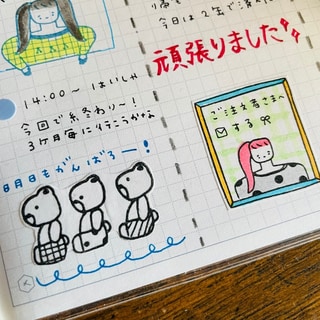 14:00〜はいしゃ
今回で糸冬わり〜!
3ヶ月毎に行こうかな
明日もがんばろー!
今日は2年で済
頑張りました!!
ご注文者さまへ
する